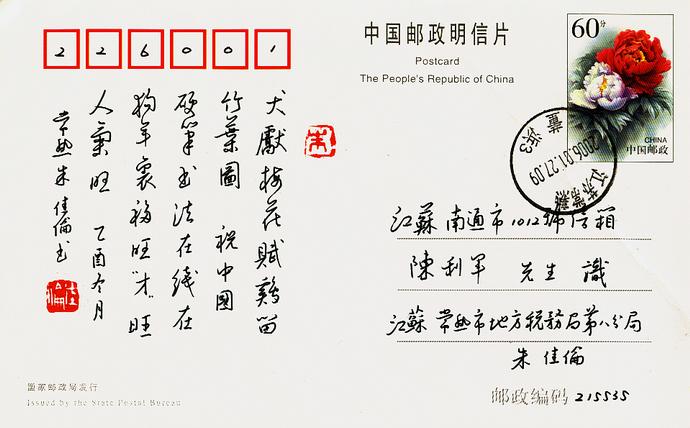 226001
中国邮政明信片
Postcard
The People's Republic of China
60分
CHINA
中国邮政
2006.01.27.09
江苏常熟
犬獻梅花賦鷄留
竹葉圖 祝中國
硬筆书法在线在
狗年裏福旺“才”旺
人氣旺 乙酉冬月
常熟朱佳倫书
朱
江蘇南通市1012號信箱
陳利軍 先生 識
江蘇常熟市地方税務局第八分局
朱佳倫
邮政编码 215535
国家邮政局发行
Issued by the State Postal Bureau